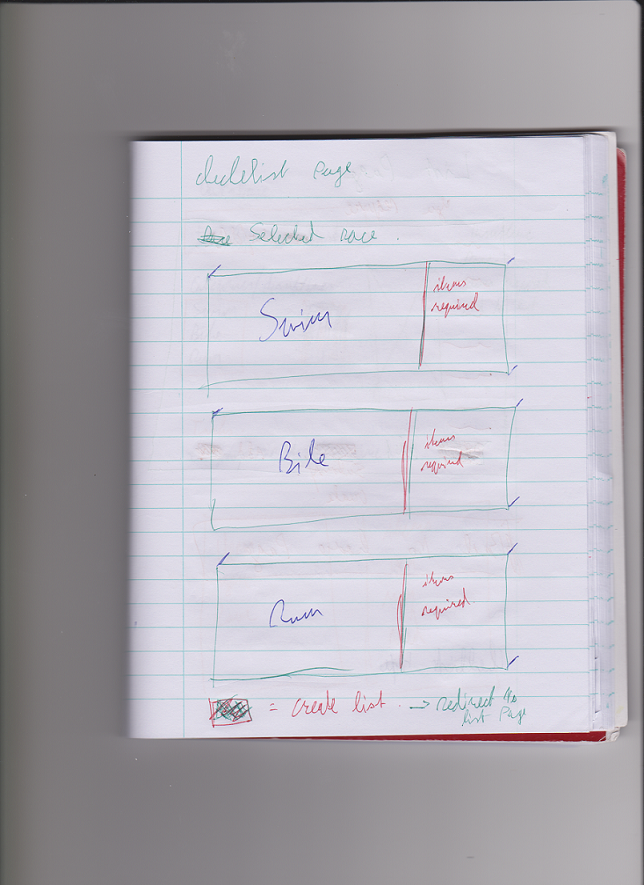 checklist page
Selected race.
Swim
items
required
Bike
items
required
Run
items
required
= create list. → redirect to
list page